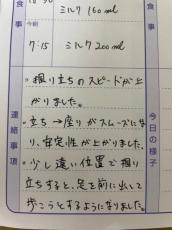 食事
ミルク 160ml
食事
7:15 ミルク 200ml
連絡事項
・掴り立ちのスピードが上
がりました。
・立ち→座りがスムーズにな
り、安定性が上がりました。
・少し遠い位置で掴り
立ちすると、足を前に出して
歩こうとするようになりました。
今日の様子